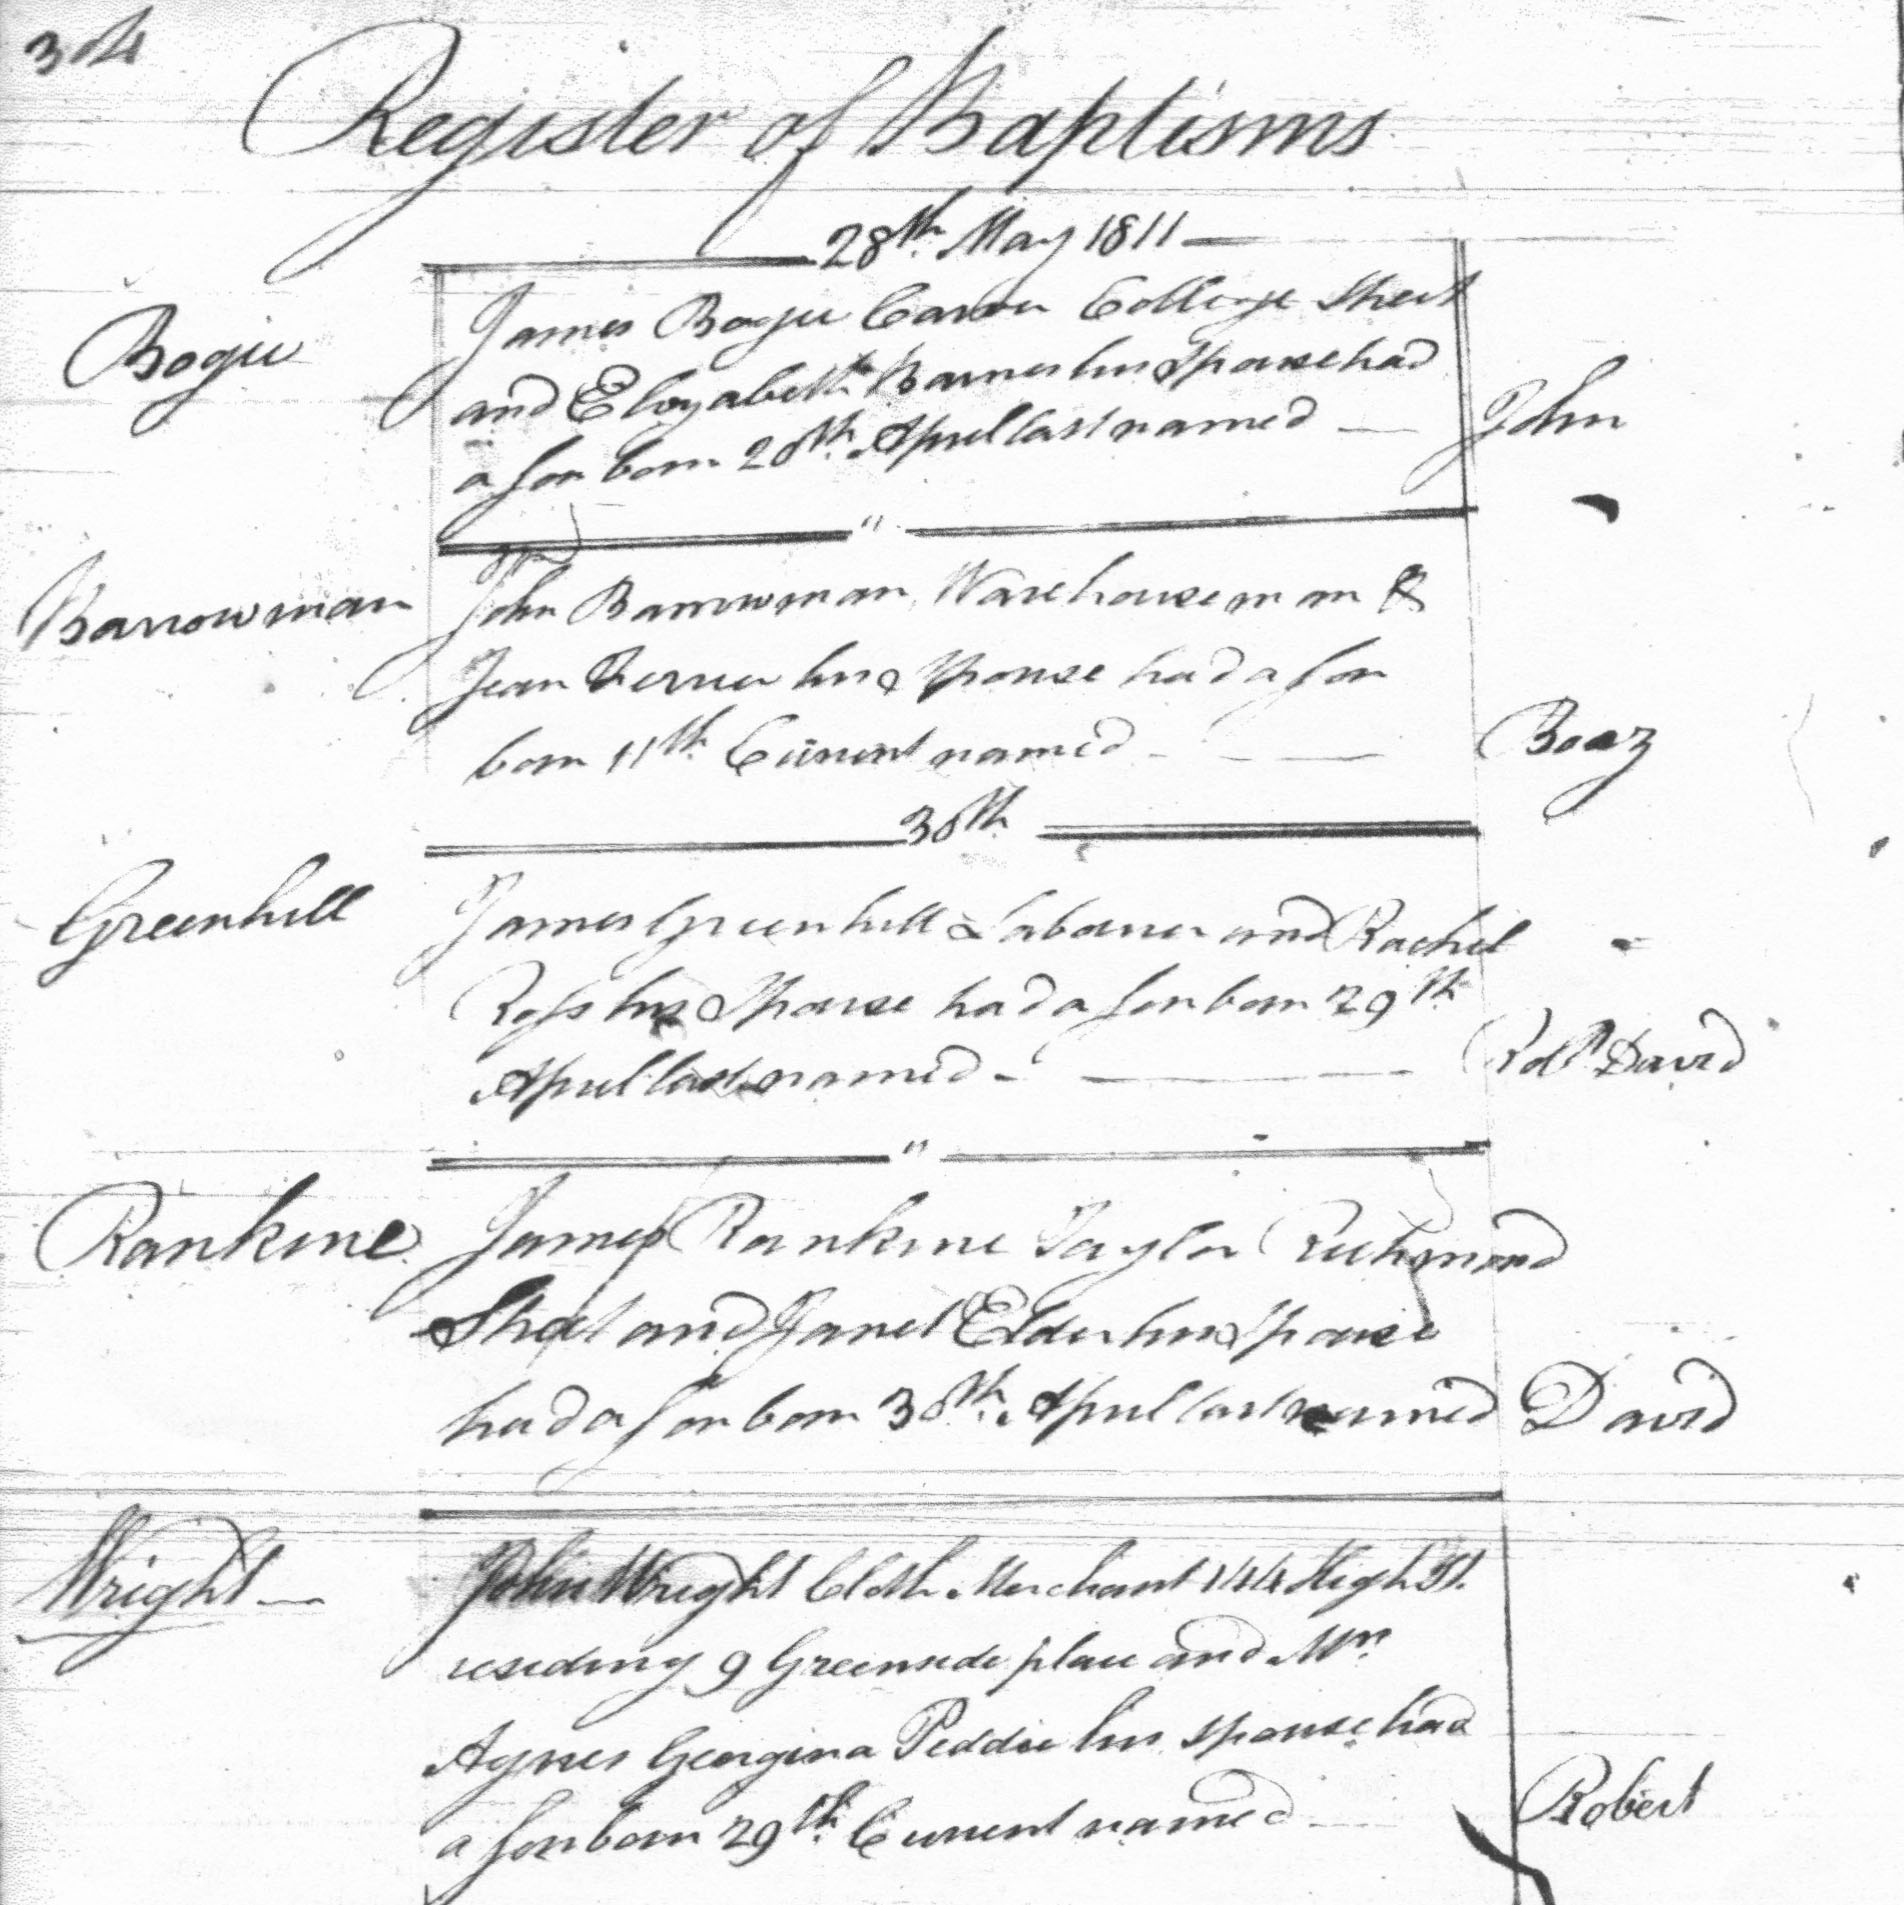 304
Register of Baptisms
28th May 1811
Bogie
James Bogie Carver College Street
and Elizabeth Barnes his Spouse had
a son born 28th April last named
John
"
Barrowman
John Barrowman Warehouseman &
Jean his Spouse had a son
born 11th Current named
Boaz
30th
Greenhill
James Greenhill Labourer and Rachel
Ross his Spouse had a son born 29th
April last named
Robt David
"
Rankine
James Rankine Taylor Richmond
Street and Janet Elder his Spouse
had a son born 30th April last named
David
Wright
John Wright Cloth Merchant 144 High St.
residing 9 Greenside place and Mrs
Agnes Georgina Peddie his spouse had
a son born 29th Current named
Robert